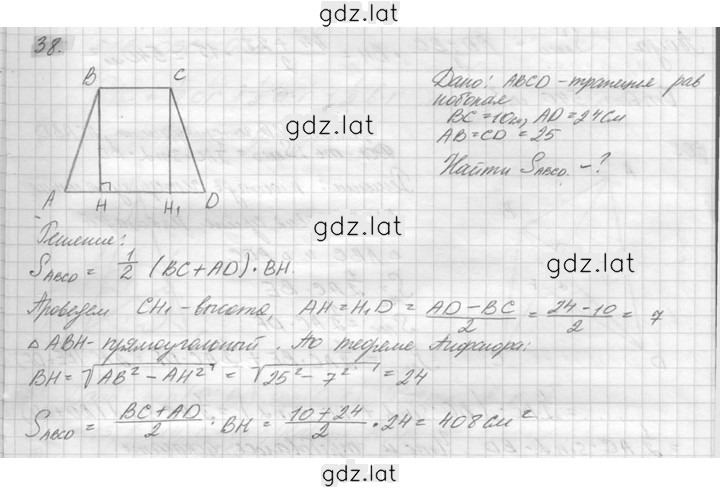 gdz.lat
38.
B C
A H H₁ D
Дано: ABCD - трапеция рав
нобокая
BC = 10см, AD = 24см
AB = CD = 25
Найти S_ABCD - ?
gdz.lat
Решение:
S_ABCD = 1/2 (BC + AD) · BH.
gdz.lat
gdz.lat
Проведем CH₁ - высота, AH = H₁D = (AD - BC)/2 = (24 - 10)/2 = 7
△ ABH - прямоугольный. По теореме Пифагора:
BH = √(AB² - AH²) = √(25² - 7²) = 24
S_ABCD = (BC + AD)/2 · BH = (10 + 24)/2 · 24 = 408 см²
gdz.lat